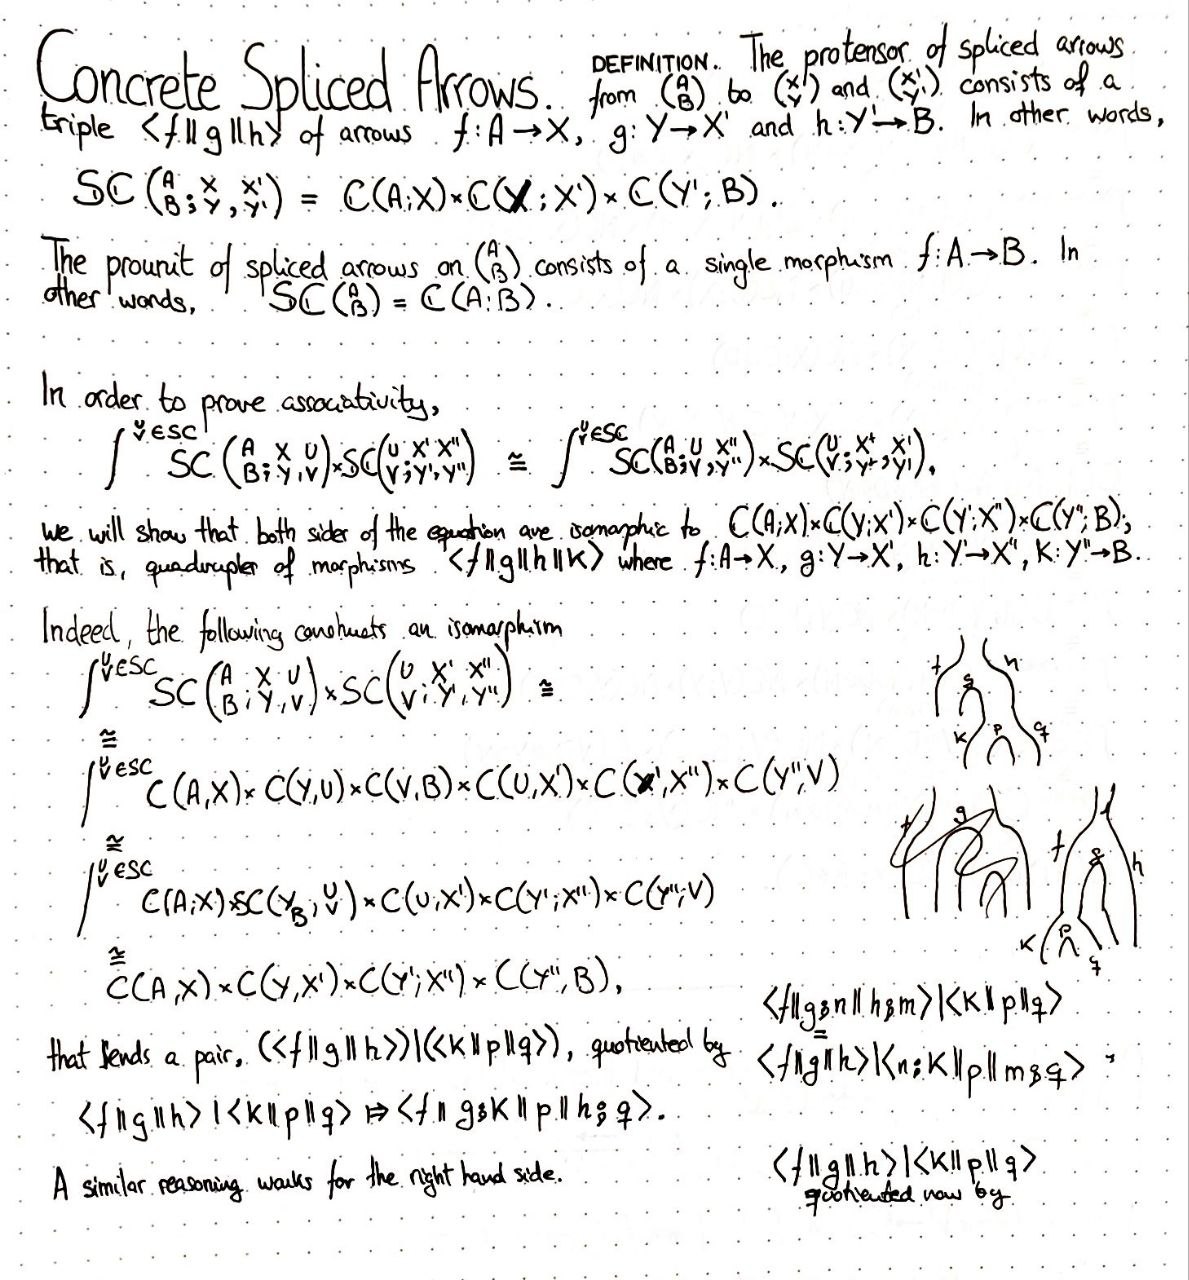 Concrete Spliced Arrows.
DEFINITION. The protensor of spliced arrows
from (A B) to (X Y) and (X' Y') consists of a
triple <f‖g‖h> of arrows f:A→X, g:Y→X' and h:Y'→B. In other words,
SC (A B; X Y, X' Y') = C(A;X)×C(Y;X')×C(Y';B).
The prounit of spliced arrows on (A B) consists of a single morphism f:A→B. In
other words, SC(A B) = C(A;B).
In order to prove associativity,
∫^{U V ∈SC} SC(A B; X Y, U V)×SC(U V; X' Y', X'' Y'') ≅ ∫^{U V ∈SC} SC(A B; U V, X'' Y'')×SC(U V; X Y, X' Y'),
we will show that both sides of the equation are isomorphic to C(A;X)×C(Y;X')×C(Y';X'')×C(Y'';B);
that is, quadruples of morphisms <f‖g‖h‖k> where f:A→X, g:Y→X', h:Y'→X'', k:Y''→B.
Indeed, the following constructs an isomorphism
∫^{U V ∈SC} SC(A B; X Y, U V)×SC(U V; X' Y', X'' Y'') ≅
≅
∫^{U V ∈SC} C(A,X)×C(Y,U)×C(V,B)×C(U,X')×C(Y',X'')×C(Y'',V)
≅
∫^{U V ∈SC} C(A;X)×SC(Y B; U V)×C(U;X')×C(Y';X'')×C(Y'';V)
≅
C(A,X)×C(Y,X')×C(Y';X'')×C(Y'',B),
that sends a pair, (<f‖g‖h>)|(<k‖p‖q>), quotiented by
<f‖g‖h>|<k‖p‖q> ↦ <f‖g⨟k‖p‖h⨟q>.
A similar reasoning works for the right hand side.
f h
g
k p q
f g
f
g h
k p
q
<f‖g⨟n‖h⨟m>|<k‖p‖q>
=
<f‖g‖h>|<n⨟k‖p‖m⨟q>,
<f‖g‖h>|<k‖p‖q>
quotiented now by